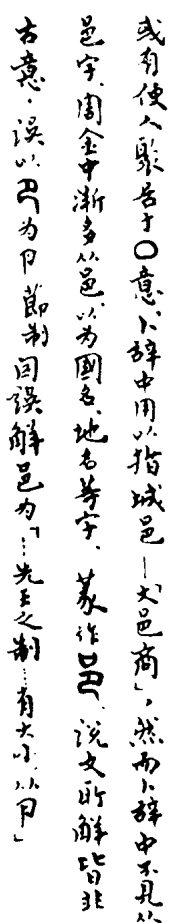 或有使人聚居于〇意、卜辞中用以指城邑—「大邑商」，然而卜辞中不見从
邑字、周金中漸多从邑、以为國名、地名等字、篆作、説文所解皆非
古意、誤以为卩節制因誤解邑为「…先王之制…有大小、从卩」